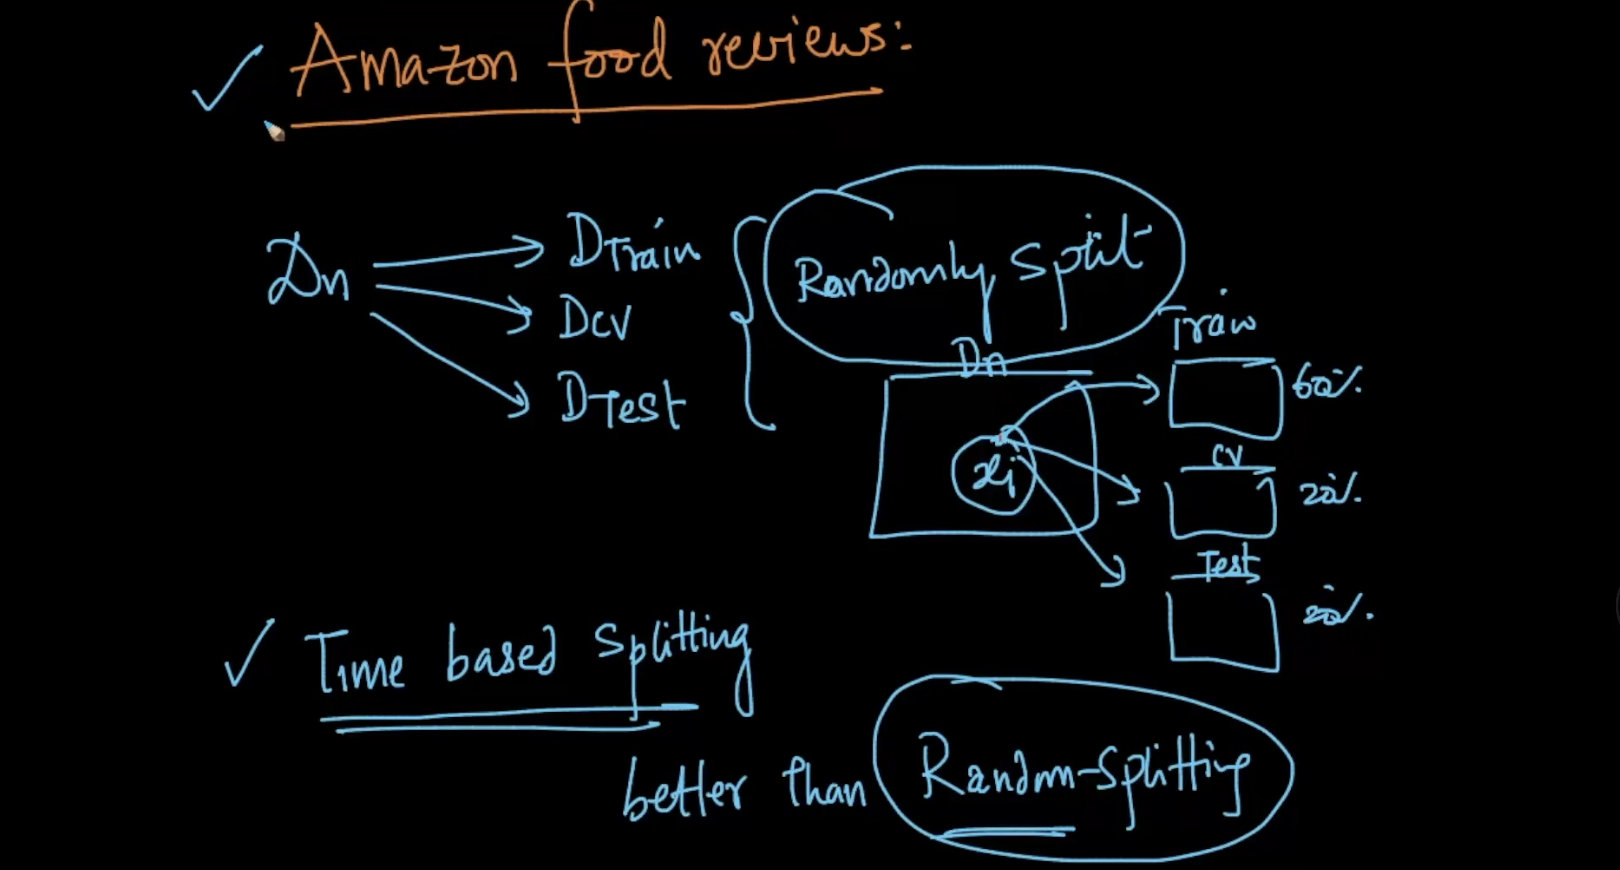 Amazon food reviews:
Dn
DTrain
DCV
DTest
Randomly Split
Dn
xi
Train
60%.
CV
20%.
Test
20%.
Time based splitting
better than Random-splitting